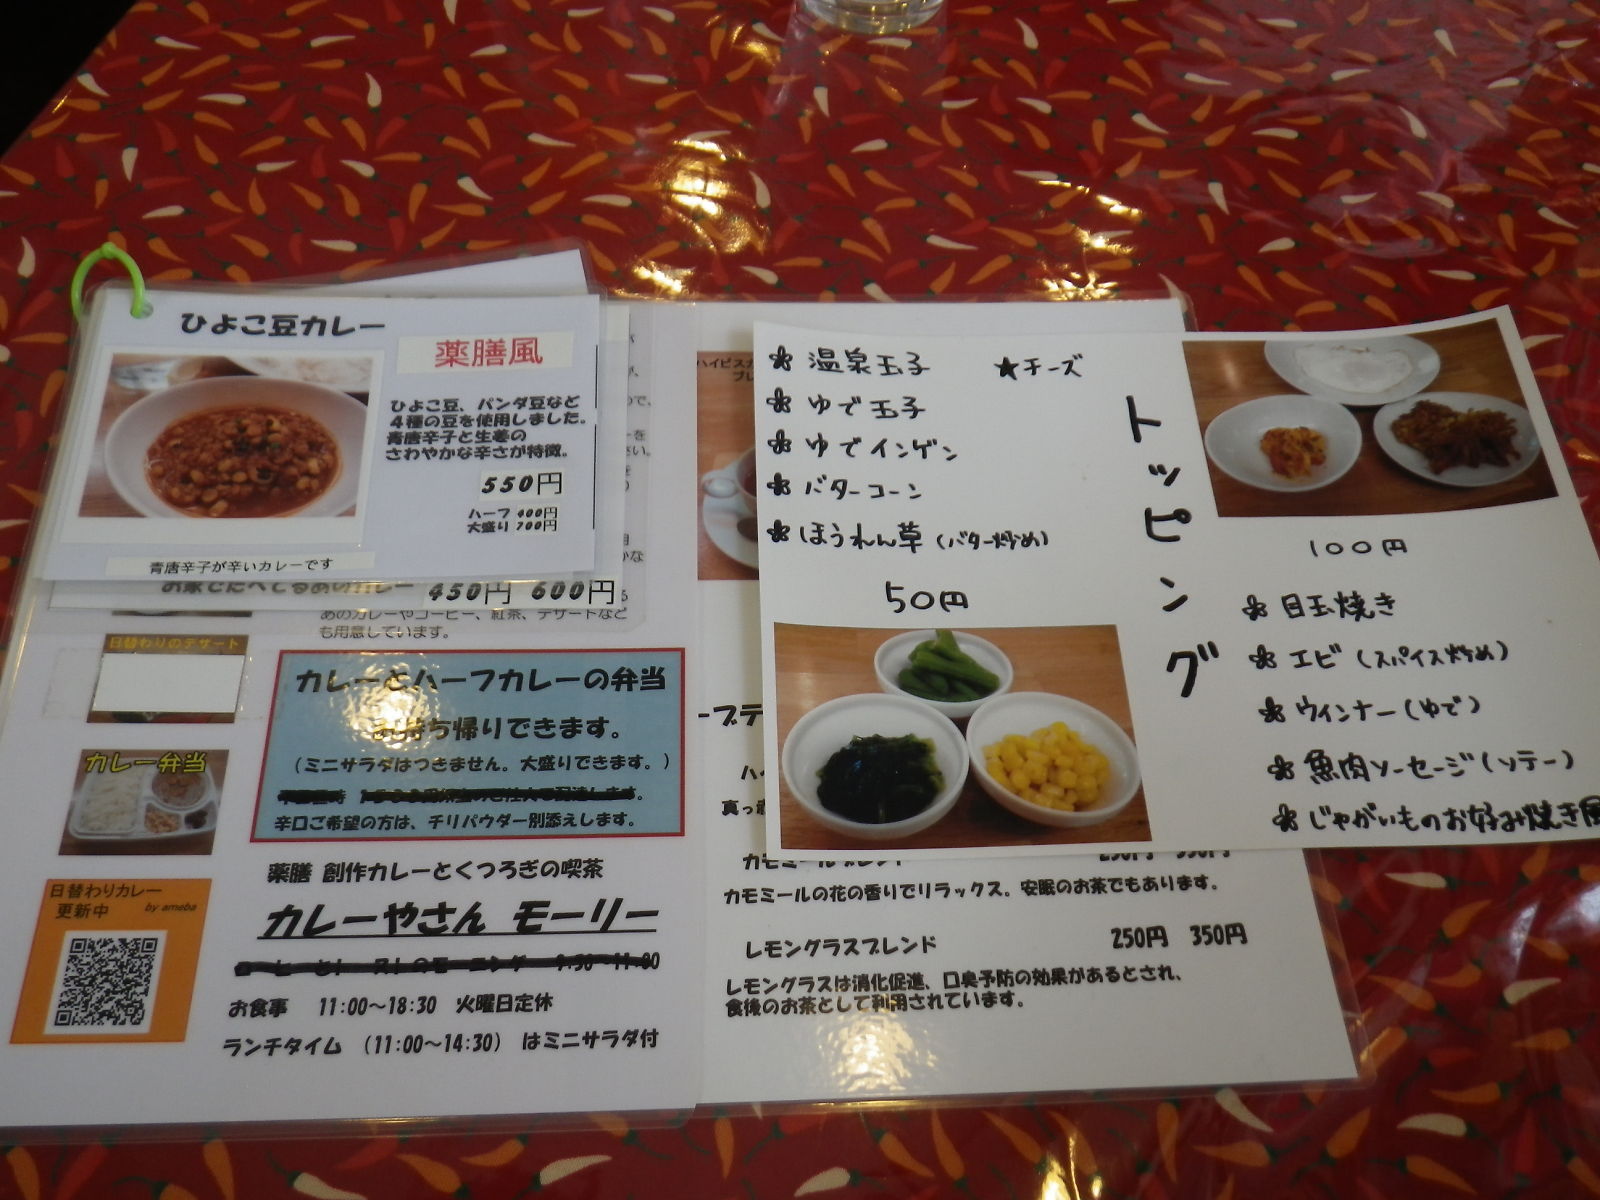 ひよこ豆カレー
薬膳風
ひよこ豆、パンダ豆など
4種の豆を使用しました。
青唐辛子と生姜の
さわやかな辛さが特徴。
550円
ハーフ 400円
大盛り 700円
青唐辛子が辛いカレーです
450円 600円
めのカレーやコーヒー、紅茶、デザートなど
も用意しています。
日替わりのデザート
カレーとハーフカレーの弁当
お持ち帰りできます。
(ミニサラダはつきません。大盛りできます。)
辛口ご希望の方は、チリパウダー別添えします。
カレー弁当
薬膳 創作カレーとくつろぎの喫茶
カレーやさん モーリー
日替わりカレー
更新中 by ameba
お食事 11:00～18:30 火曜日定休
ランチタイム (11:00～14:30) はミニサラダ付
カモミールブレンド
カモミールの花の香りでリラックス。安眠のお茶でもあります。
レモングラスブレンド 250円 350円
レモングラスは消化促進、口臭予防の効果があるとされ、
食後のお茶として利用されています。
トッピング
温泉玉子 ★チーズ
ゆで玉子
ゆでインゲン
バターコーン
ほうれん草(バター炒め)
50円
100円
目玉焼き
エビ(スパイス炒め)
ウインナー(ゆで)
魚肉ソーセージ(ソテー)
じゃがいものお好み焼き風